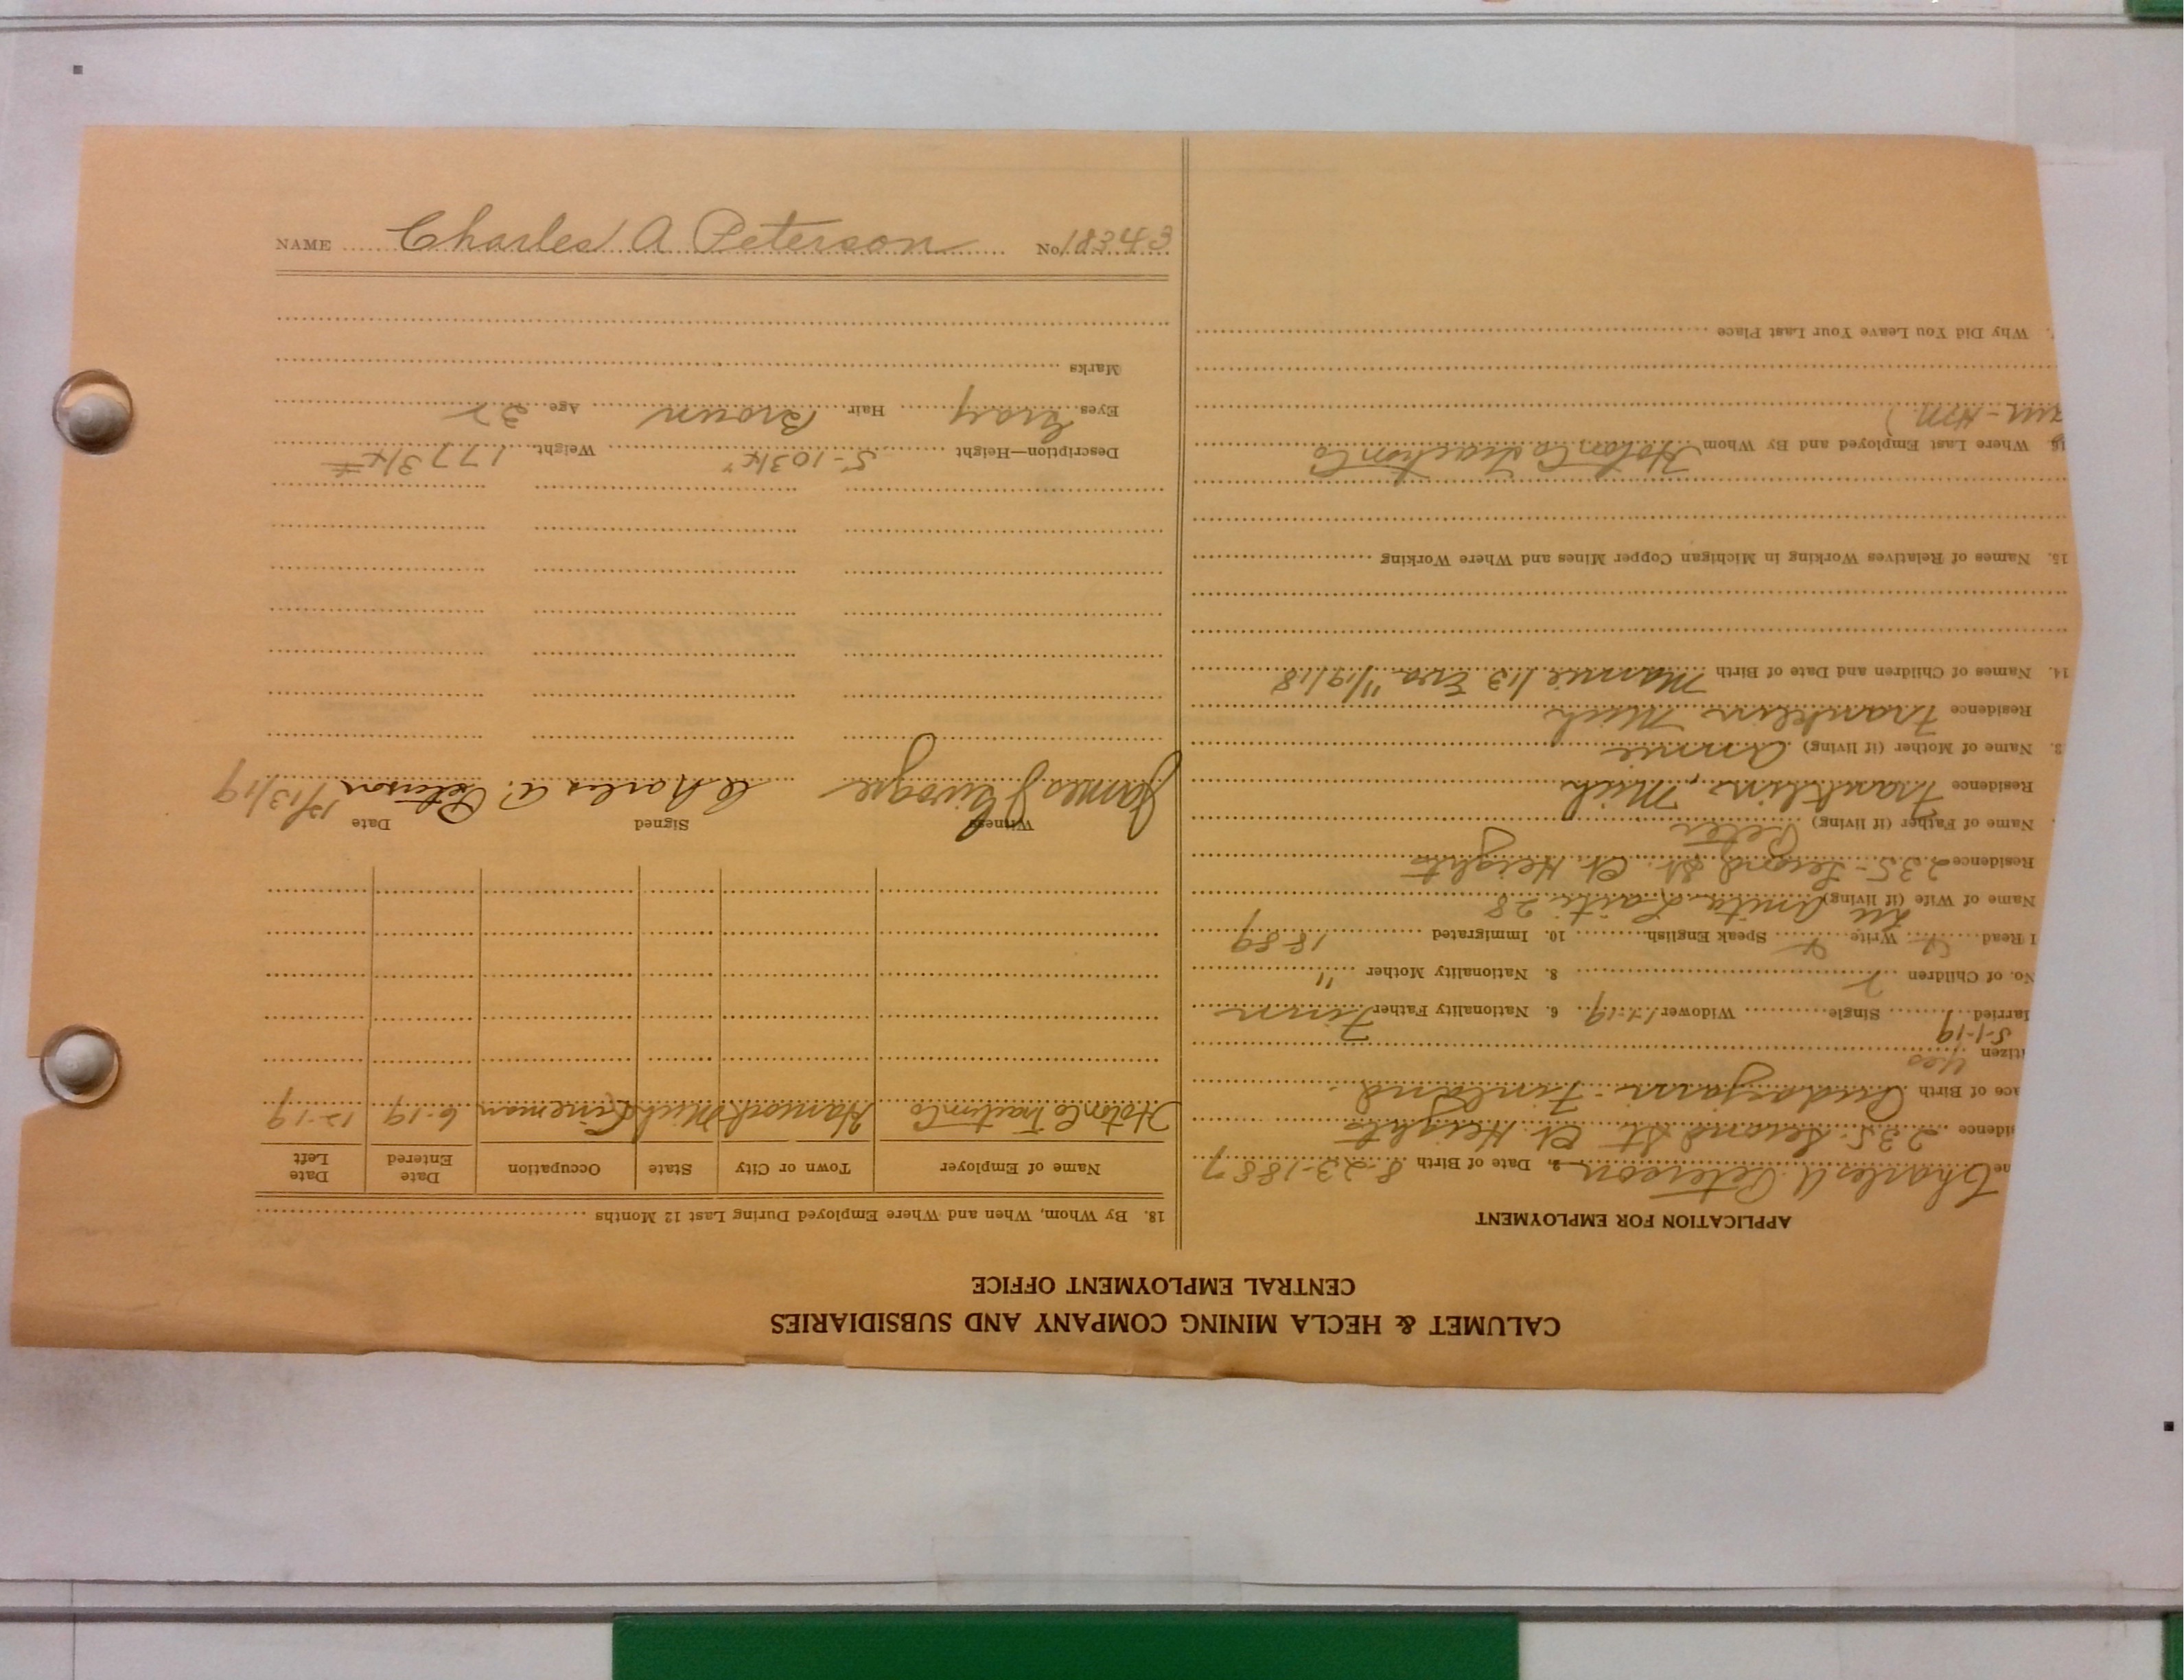 CALUMET & HECLA MINING COMPANY AND SUBSIDIARIES
CENTRAL EMPLOYMENT OFFICE
APPLICATION FOR EMPLOYMENT
ne Charles A Peterson 2. Date of Birth 8-23-1887
idence 235 Second St. Heights
ace of Birth Finland
itizen yes
5-1-19
larried Single Widower 6. Nationality Father Finn
No. of Children 2 8. Nationality Mother "
I Read Write Speak English 10. Immigrated 1889
Name of Wife (if living) 28
Residence 235-Second St. Heights
Name of Father (if living) Peter
Residence Franklin, Mich
3. Name of Mother (if living) Annie
Residence Franklin Mich
14. Names of Children and Date of Birth Mamie 1/13 Eva 11/19/18
15. Names of Relatives Working in Michigan Copper Mines and Where Working
16. Where Last Employed and By Whom Hoton Co Traction Co
Why Did You Leave Your Last Place
18. By Whom, When and Where Employed During Last 12 Months
Name of Employer Town or City State Occupation Date Entered Date Left
Hoton Co Traction Co Hancock Mich Lineman 6-19 12-19
Witness Signed Date
James Charles A. Peterson 12/13/19
Description—Height 5-10 3/4" Weight 177 3/4 #
Eyes Gray Hair Brown Age 32
Marks
NAME Charles A Peterson No. 18343